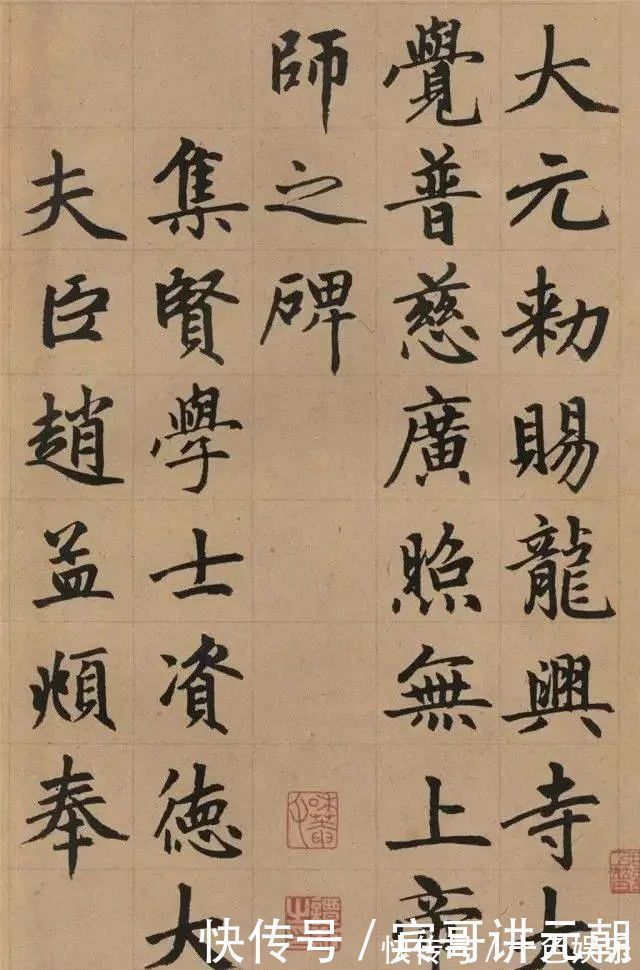 大元勑賜龍興寺大
覺普慈廣照無上帝
師之碑
集賢學士資德大
夫臣趙孟頫奉
快传号 / 寅哥讲元朝